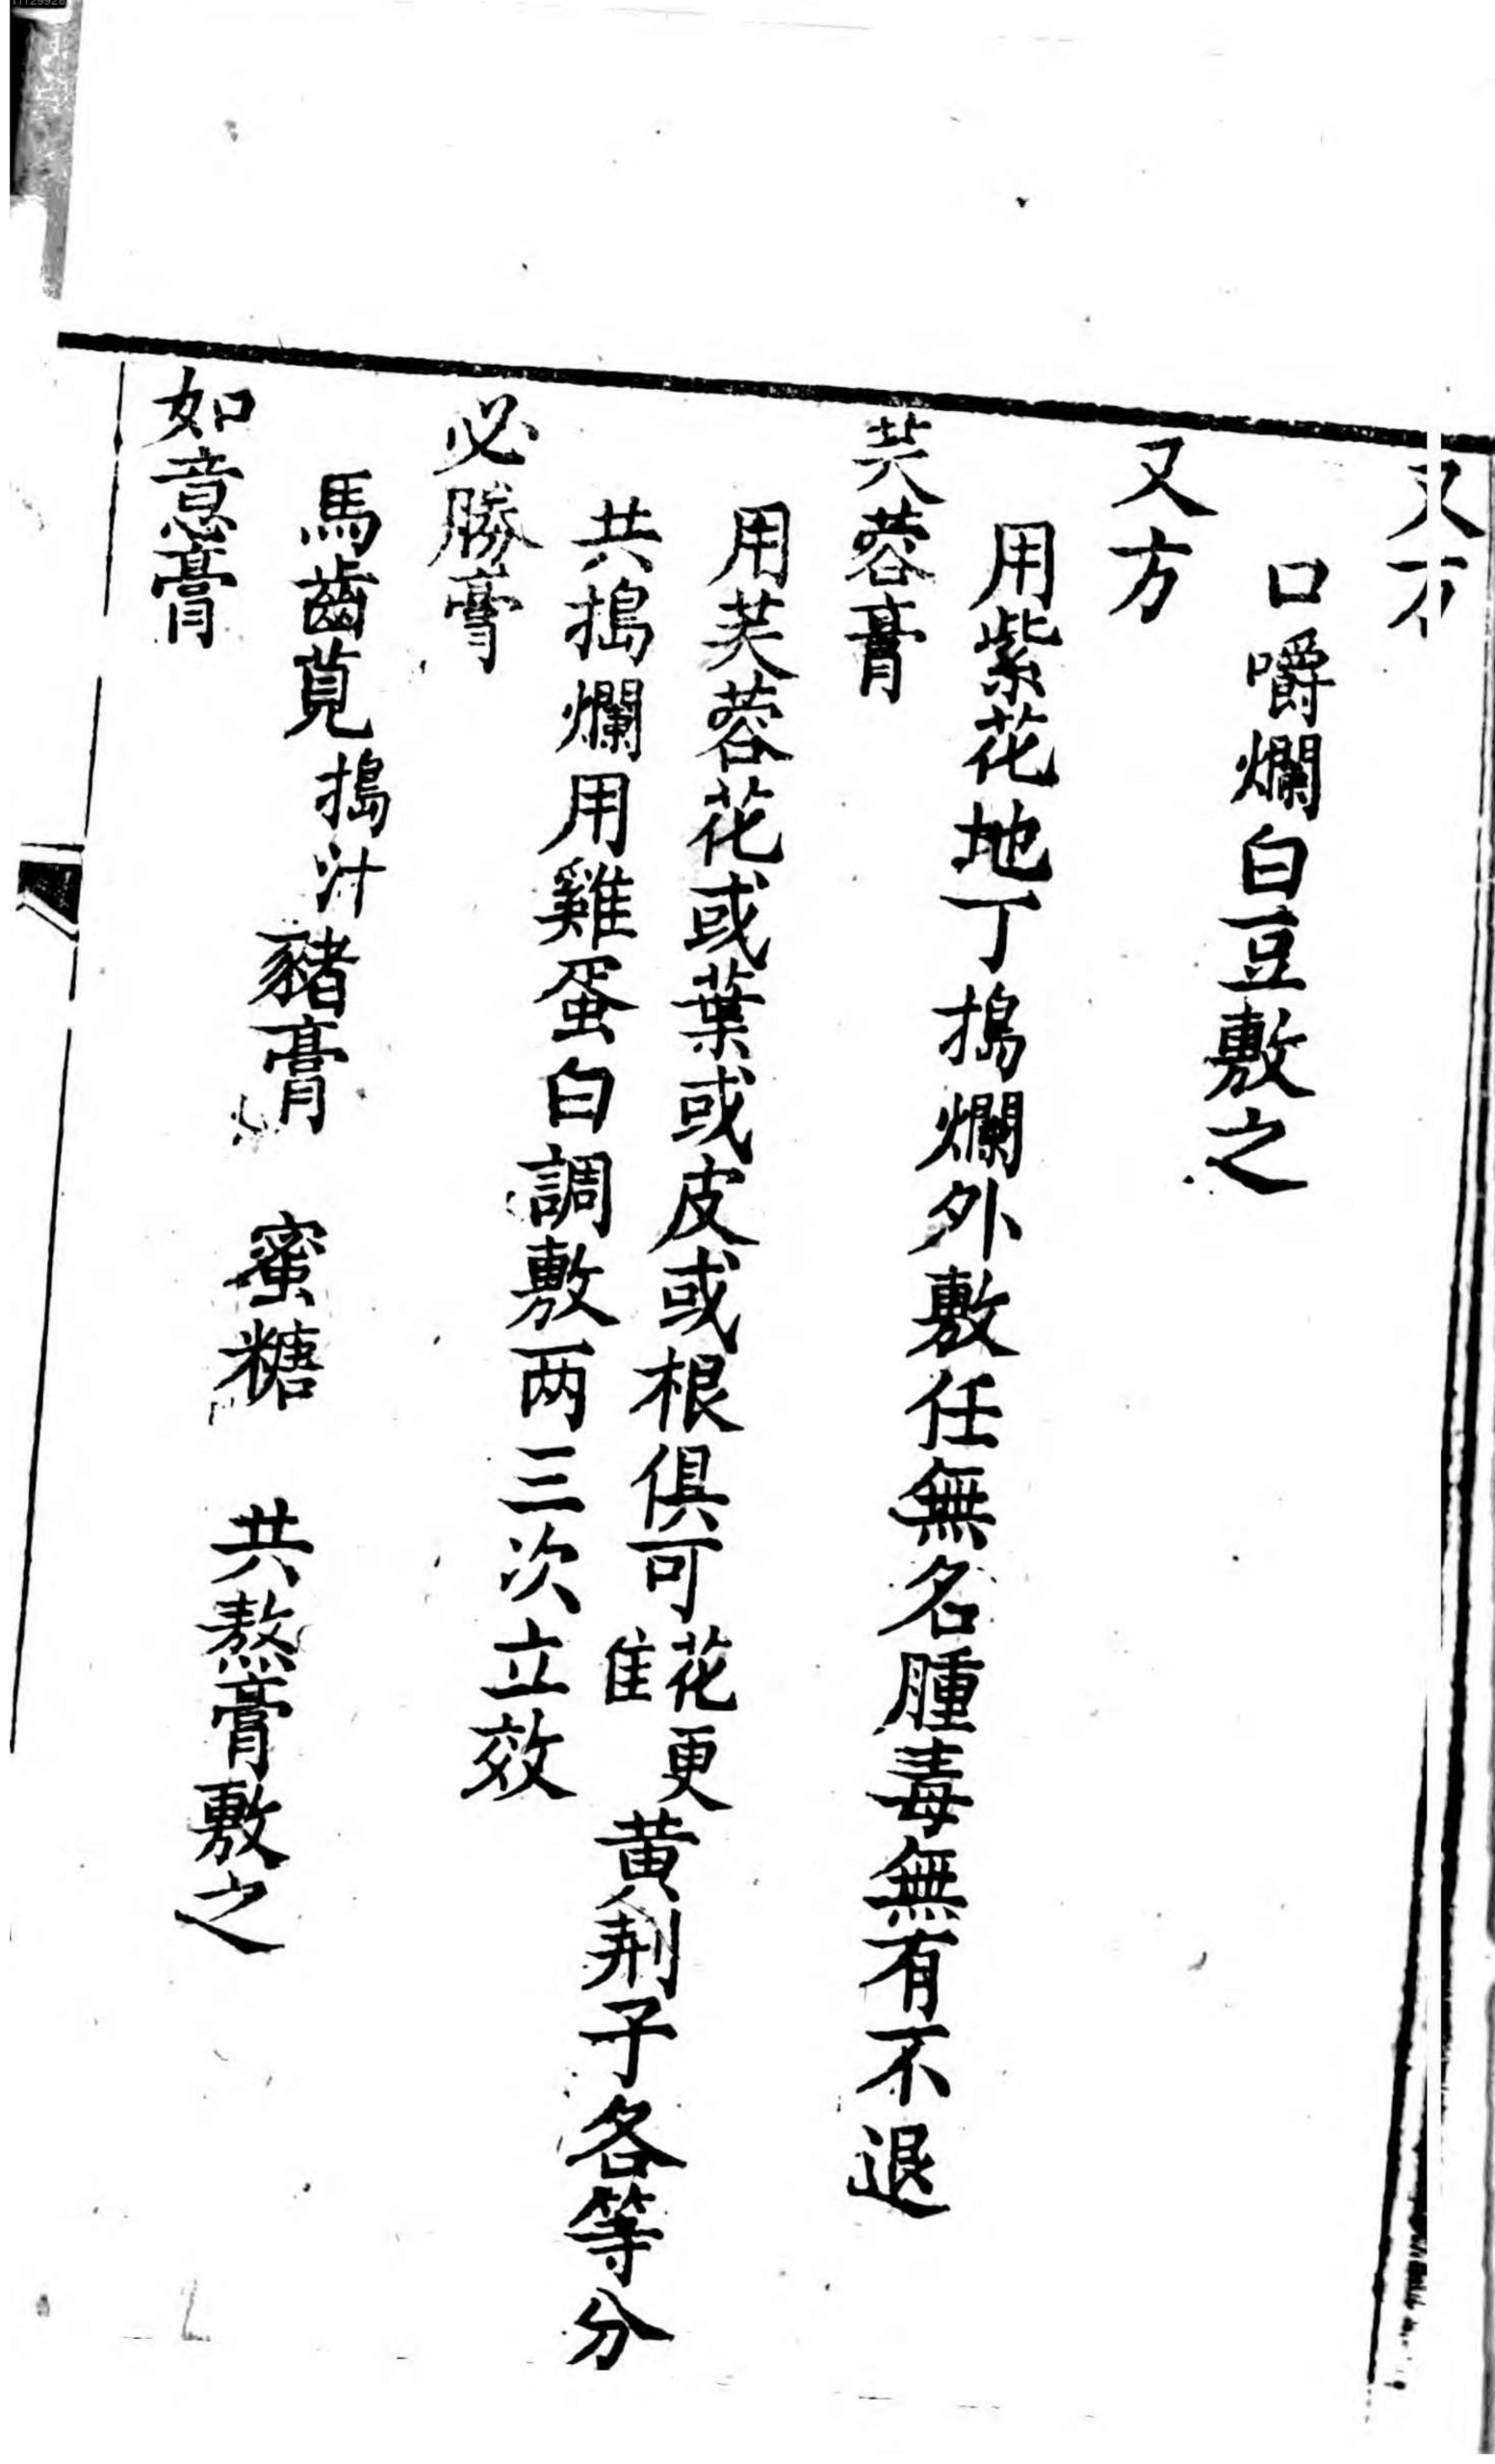 又方
口嚼爛白豆敷之
又方
用紫花地丁搗爛外敷任無名腫毒無有不退
芙蓉膏
用芙蓉花或葉或皮或根俱可花更佳黄荆子各等分
共搗爛用雞蛋白調敷两三次立效
必勝膏
馬齒莧搗汁豬膏　蜜糖　共熬膏敷之
如意膏